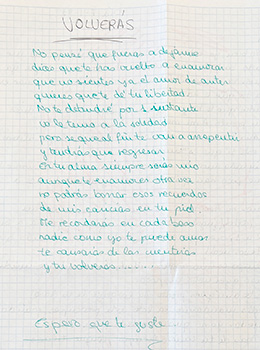 VOLVERÁS
No pensé que fueras a dejarme
dices que te has vuelto a enamorar
que no sientes ya el amor de antes
quieres que te dé tu libertad.
No te detendré por 1 instante
no le temo a la soledad
pero se que al fin te vas a arrepentir
y tendrás que regresar
En tu alma siempre serás mio
aunque te enamores otra vez
no podrás borrar esos recuerdos
de mis caricias en tu piel
Me recordarás en cada beso
nadie como yo te puede amar
te cansarás de las mentiras
y tu volveras......
Espero que te guste